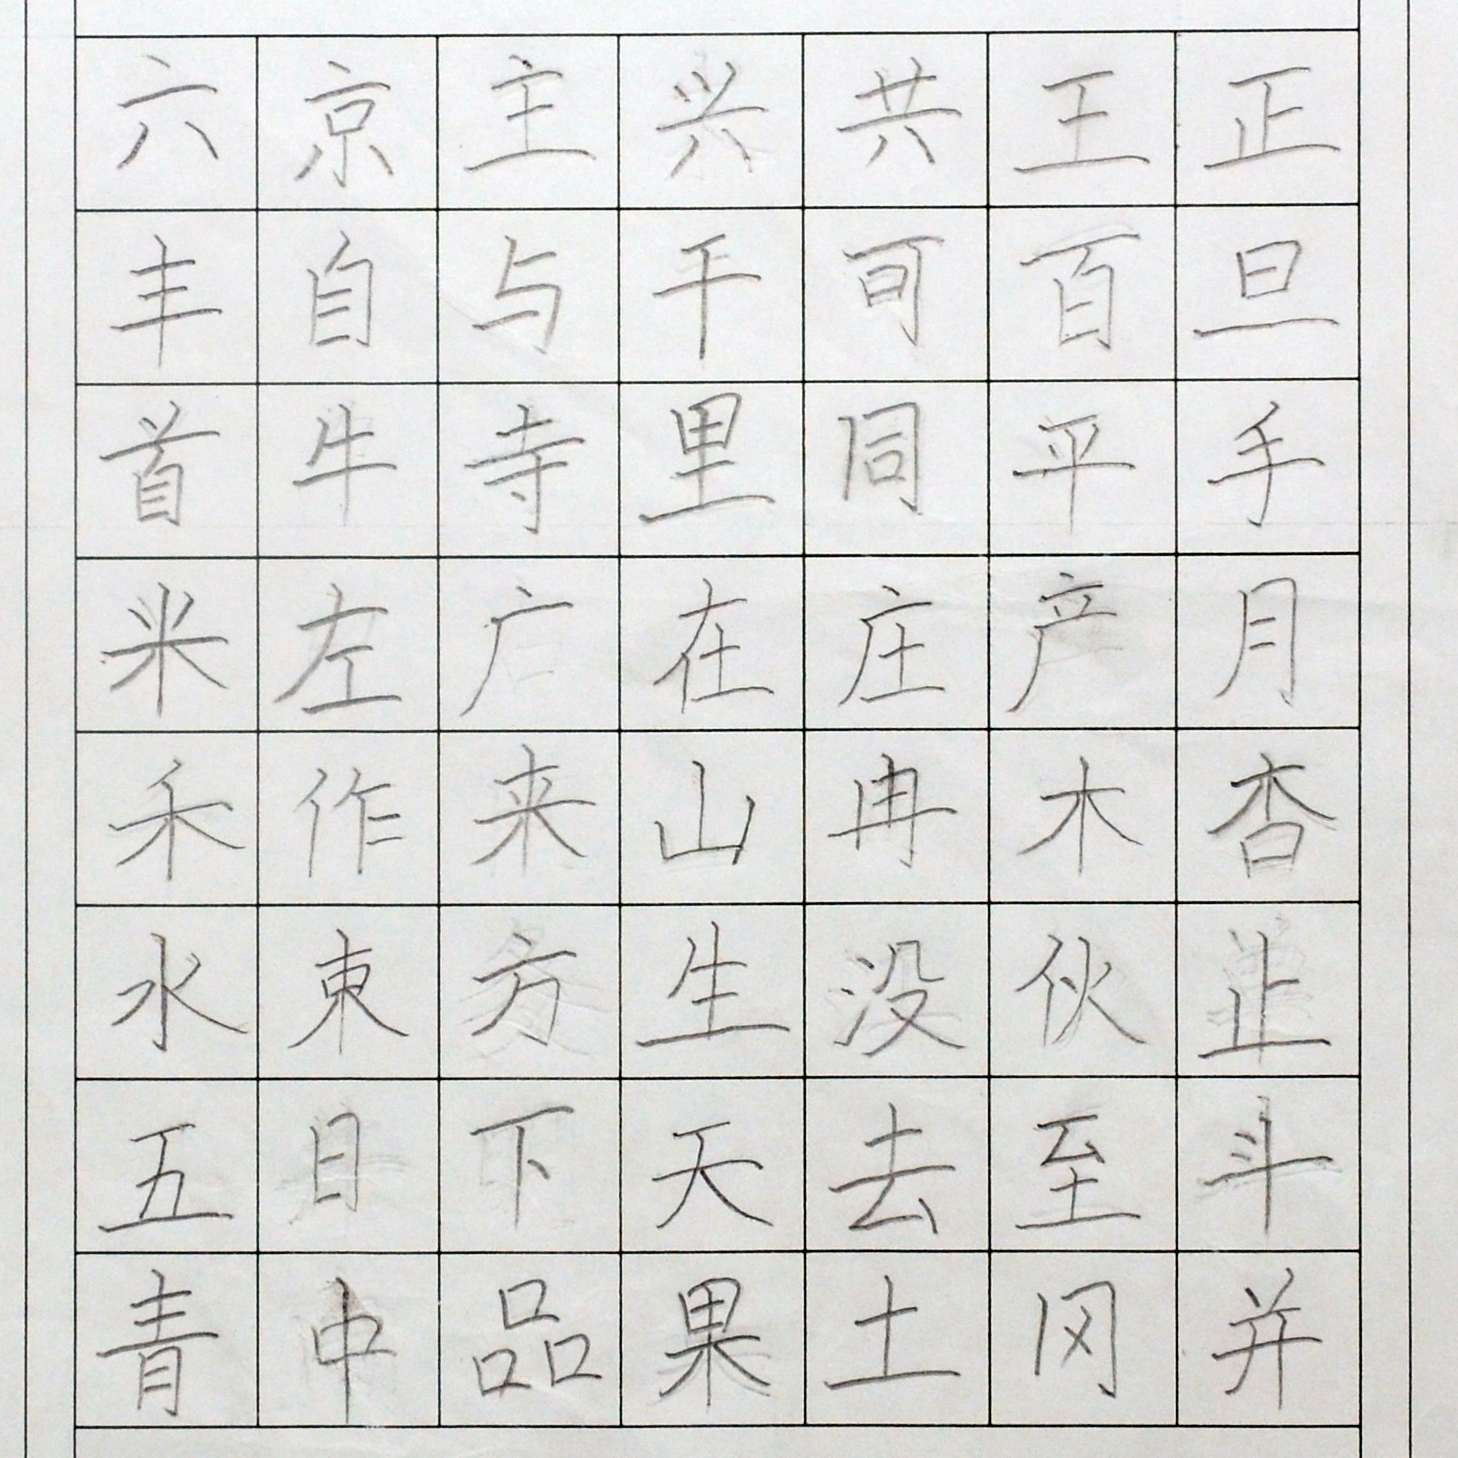 六京主兴共王正
丰自与干可百旦
首牛寺里同平手
米左广在庄产月
禾作来山冉木杏
水東方生没伙止
五目下天去至斗
青中品果土冈并